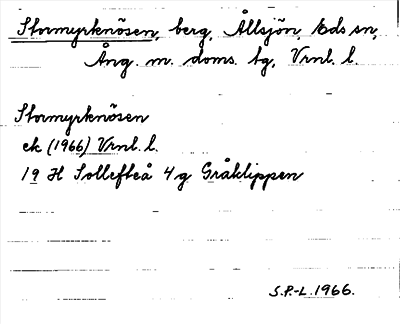 Stormyrknösen, berg, Ållsjön, Eds sn,
Ång. m. doms. tg, Vrnl. l.
Stormyrknösen
ek (1966) Vrnl. l.
19 H Sollefteå 4g Gråklippen
S.P.-L. 1966.